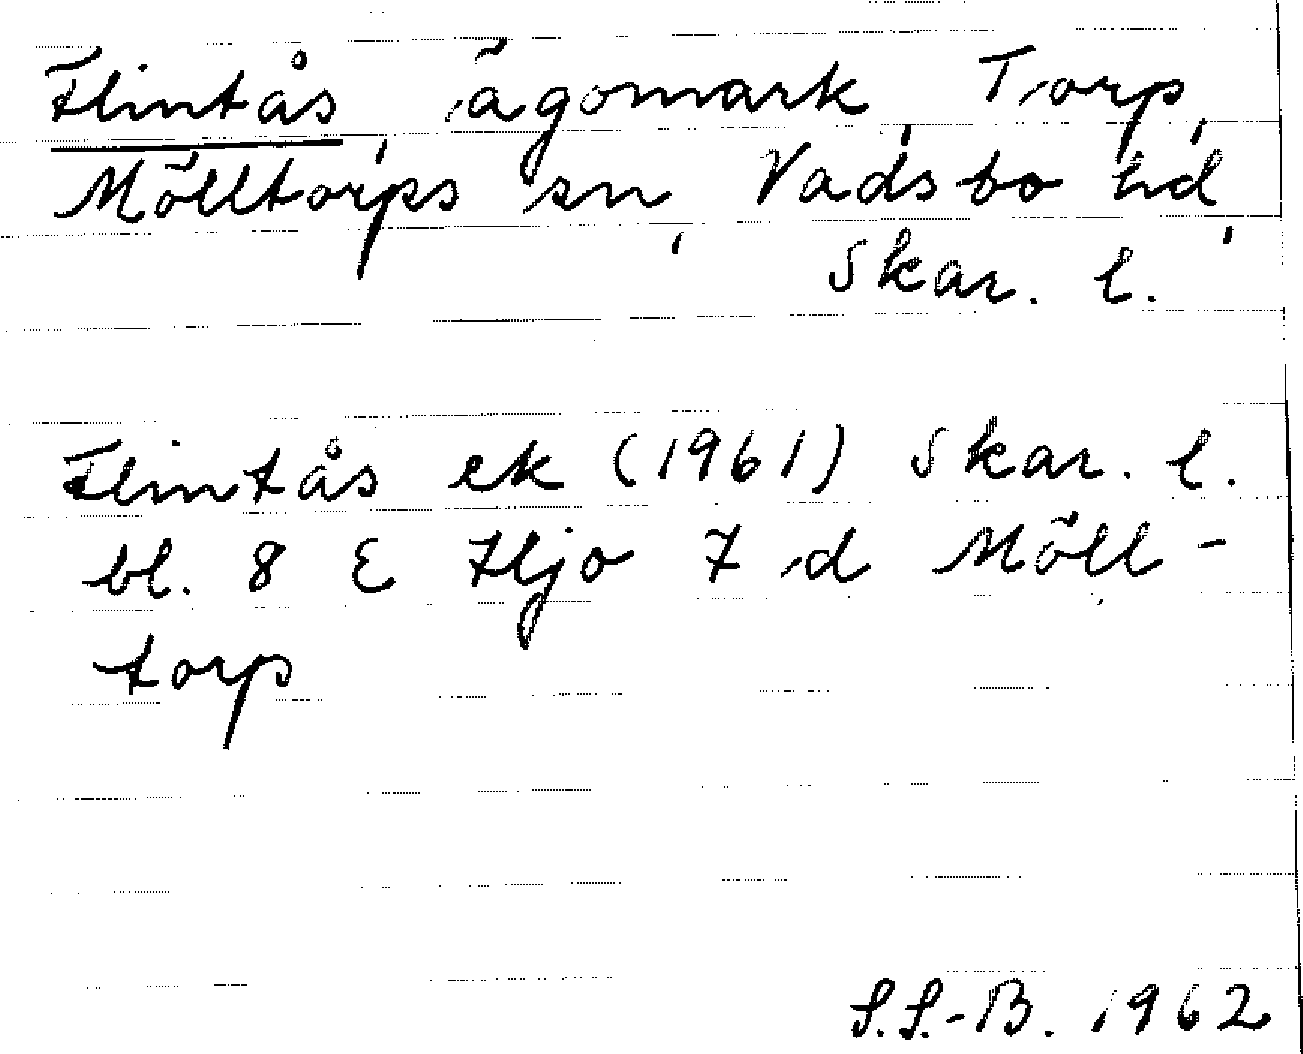 Flintås, ägomark, Torp,
Mölltorps sn, Vadsbo hd,
Skar. l.
Flintås ek (1961) Skar. l.
bl. 8 E Hjo 7 d Möll-
torp
S.S.-B. 1962